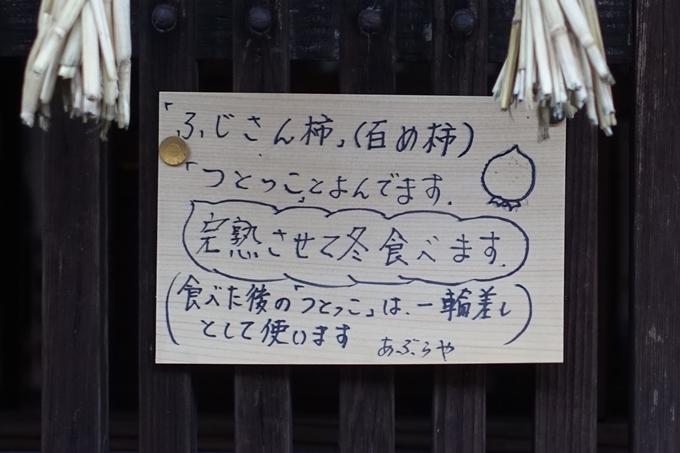 「ふじさん柿」(百め柿)
「つとっこ」とよんでます.
完熟させて冬食べます.
(食べた後の「つとっこ」は、一輪差し
として使います)
あぶらや